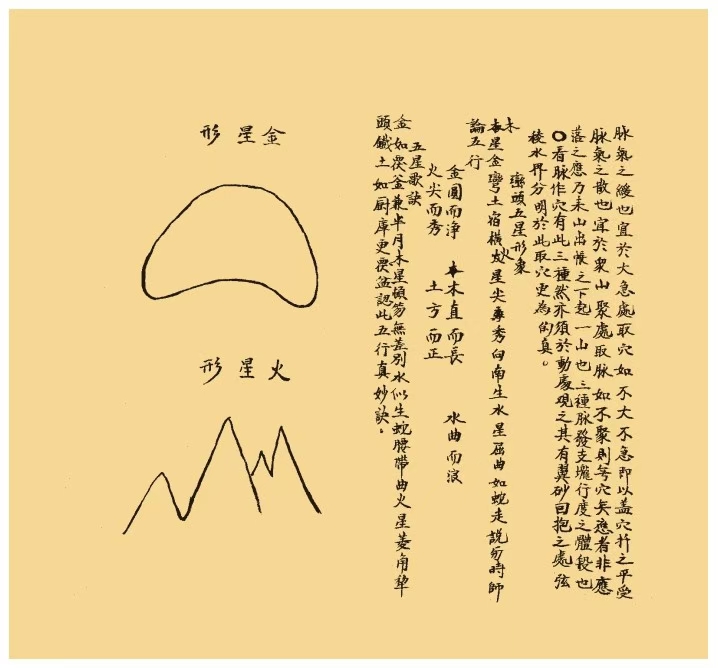 脉氣之緩也宜於大急處取穴如不大不急即以盖穴扦之平受
脉氣之散也宜於衆山聚處取脉如不聚則等穴矣應者非應
落之應乃未山出帳之下起一山也三種脉發支壠行度之體段也
○看脉作穴有此三種然亦須於動處观之其有翼砂回抱之處弦
稜水界分明於此取穴更為的真。
巒頭五星形象
木星金彎土宿橫火星尖專秀向南生水星屈曲如蛇走説與時師
論五行
金圓而浄 木直而長 水曲而浪
火尖而秀 土方而正
五星歌訣
金如覆釜兼半月木星頓笏無差別水似生蛇腰帶曲火星菱角犂
頭鐵土如厨庫更覆盆認此五行真妙訣。
金星形
火星形